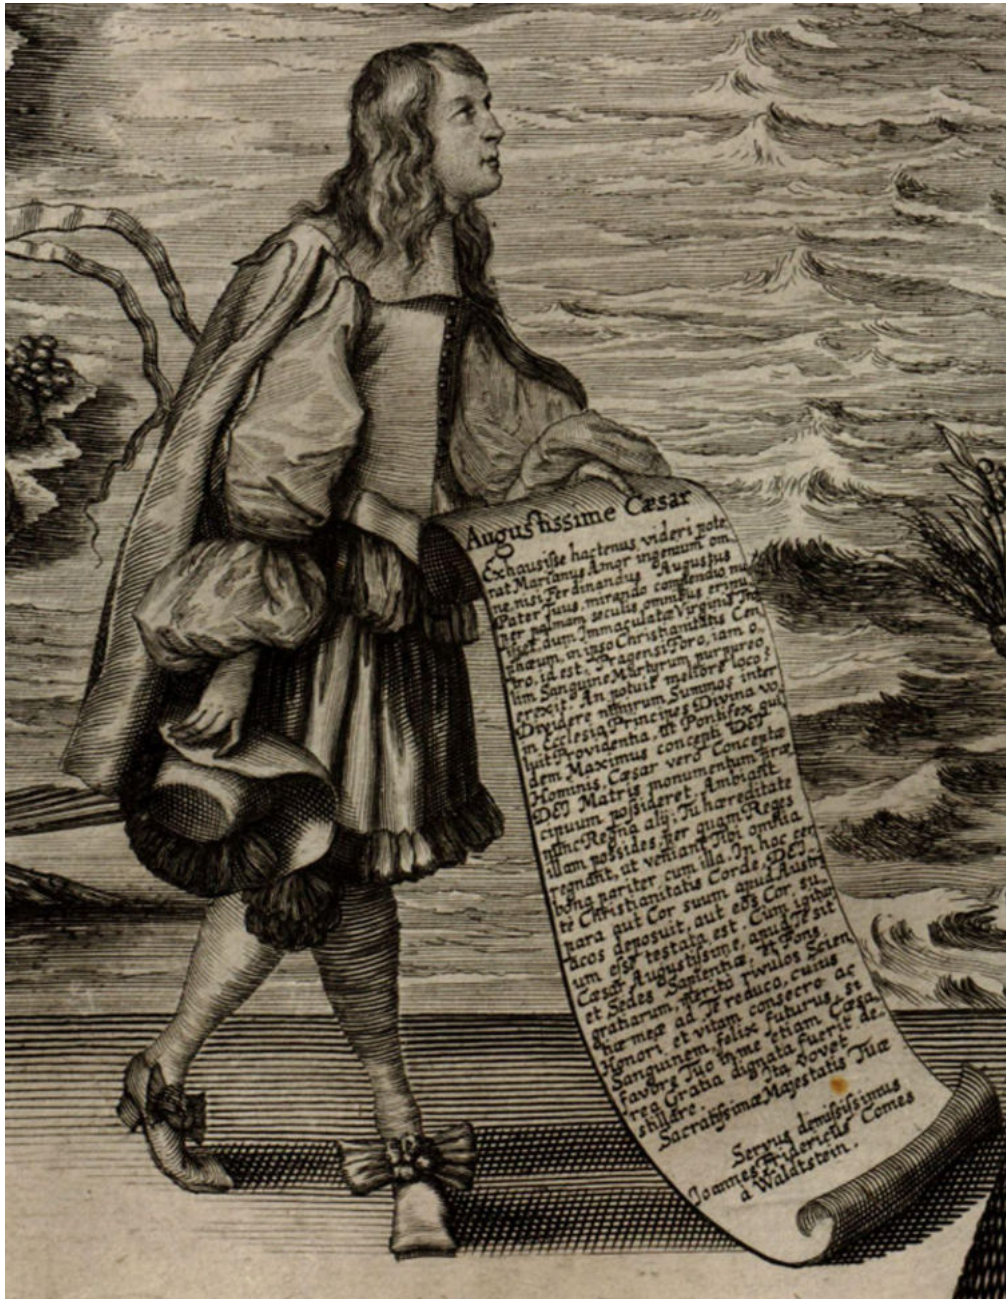 Augustissime Cæsar
Exhausisse hactenus videri pote
rat Marianus Amor ingenium om
ne, nisi Ferdinandus Augustus
Pater Tuus, mirando compendio mu
ner palmam seculis omnibus eripu
isset, dum Immaculatæ Virginis
in ipso Christianitatis Cen
tro, id est, Pragensi Foro, iam o,
lim Sanguine Martyrum purpureo
erexit. An potuit meliore loco?
Dividere nimirum Summos inter
in Ecclesia Principes Divina vo
luit Providentia, ut Pontifex qui
dem Maximus concepti DEI
Hominis, Cæsar vero Conceptæ
DEI Matris monumentum
cipuum possideret. Ambiant
nunc Regna alij, Tu hæreditate
illam possides, per quam Reges
regnant, ut veniant Tibi omnia
bona pariter cum illa. In hoc cer
te Christianitatis Corde, DEI
para aut Cor suum apud Austri
acos deposuit, aut eos Cor su,
um esse testata est. Cum igitur
Cæsar Augustissime, apud Te sit
et Sedes Sapientiæ, et Fons
gratiarum, merito rivulos Scien
tiæ meæ ad Te reduco, cuius
Honori et vitam consecro ac
Sanguinem, felix futurus, si
favore Tuo in me etiam Cæsa,
rea Gratia dignata fuerit de,
stillare. Ita vovet
Sacratissimæ Majestatis Tuæ
Servus demississimus
Joannes Fridericus Comes
à Waldtstein.